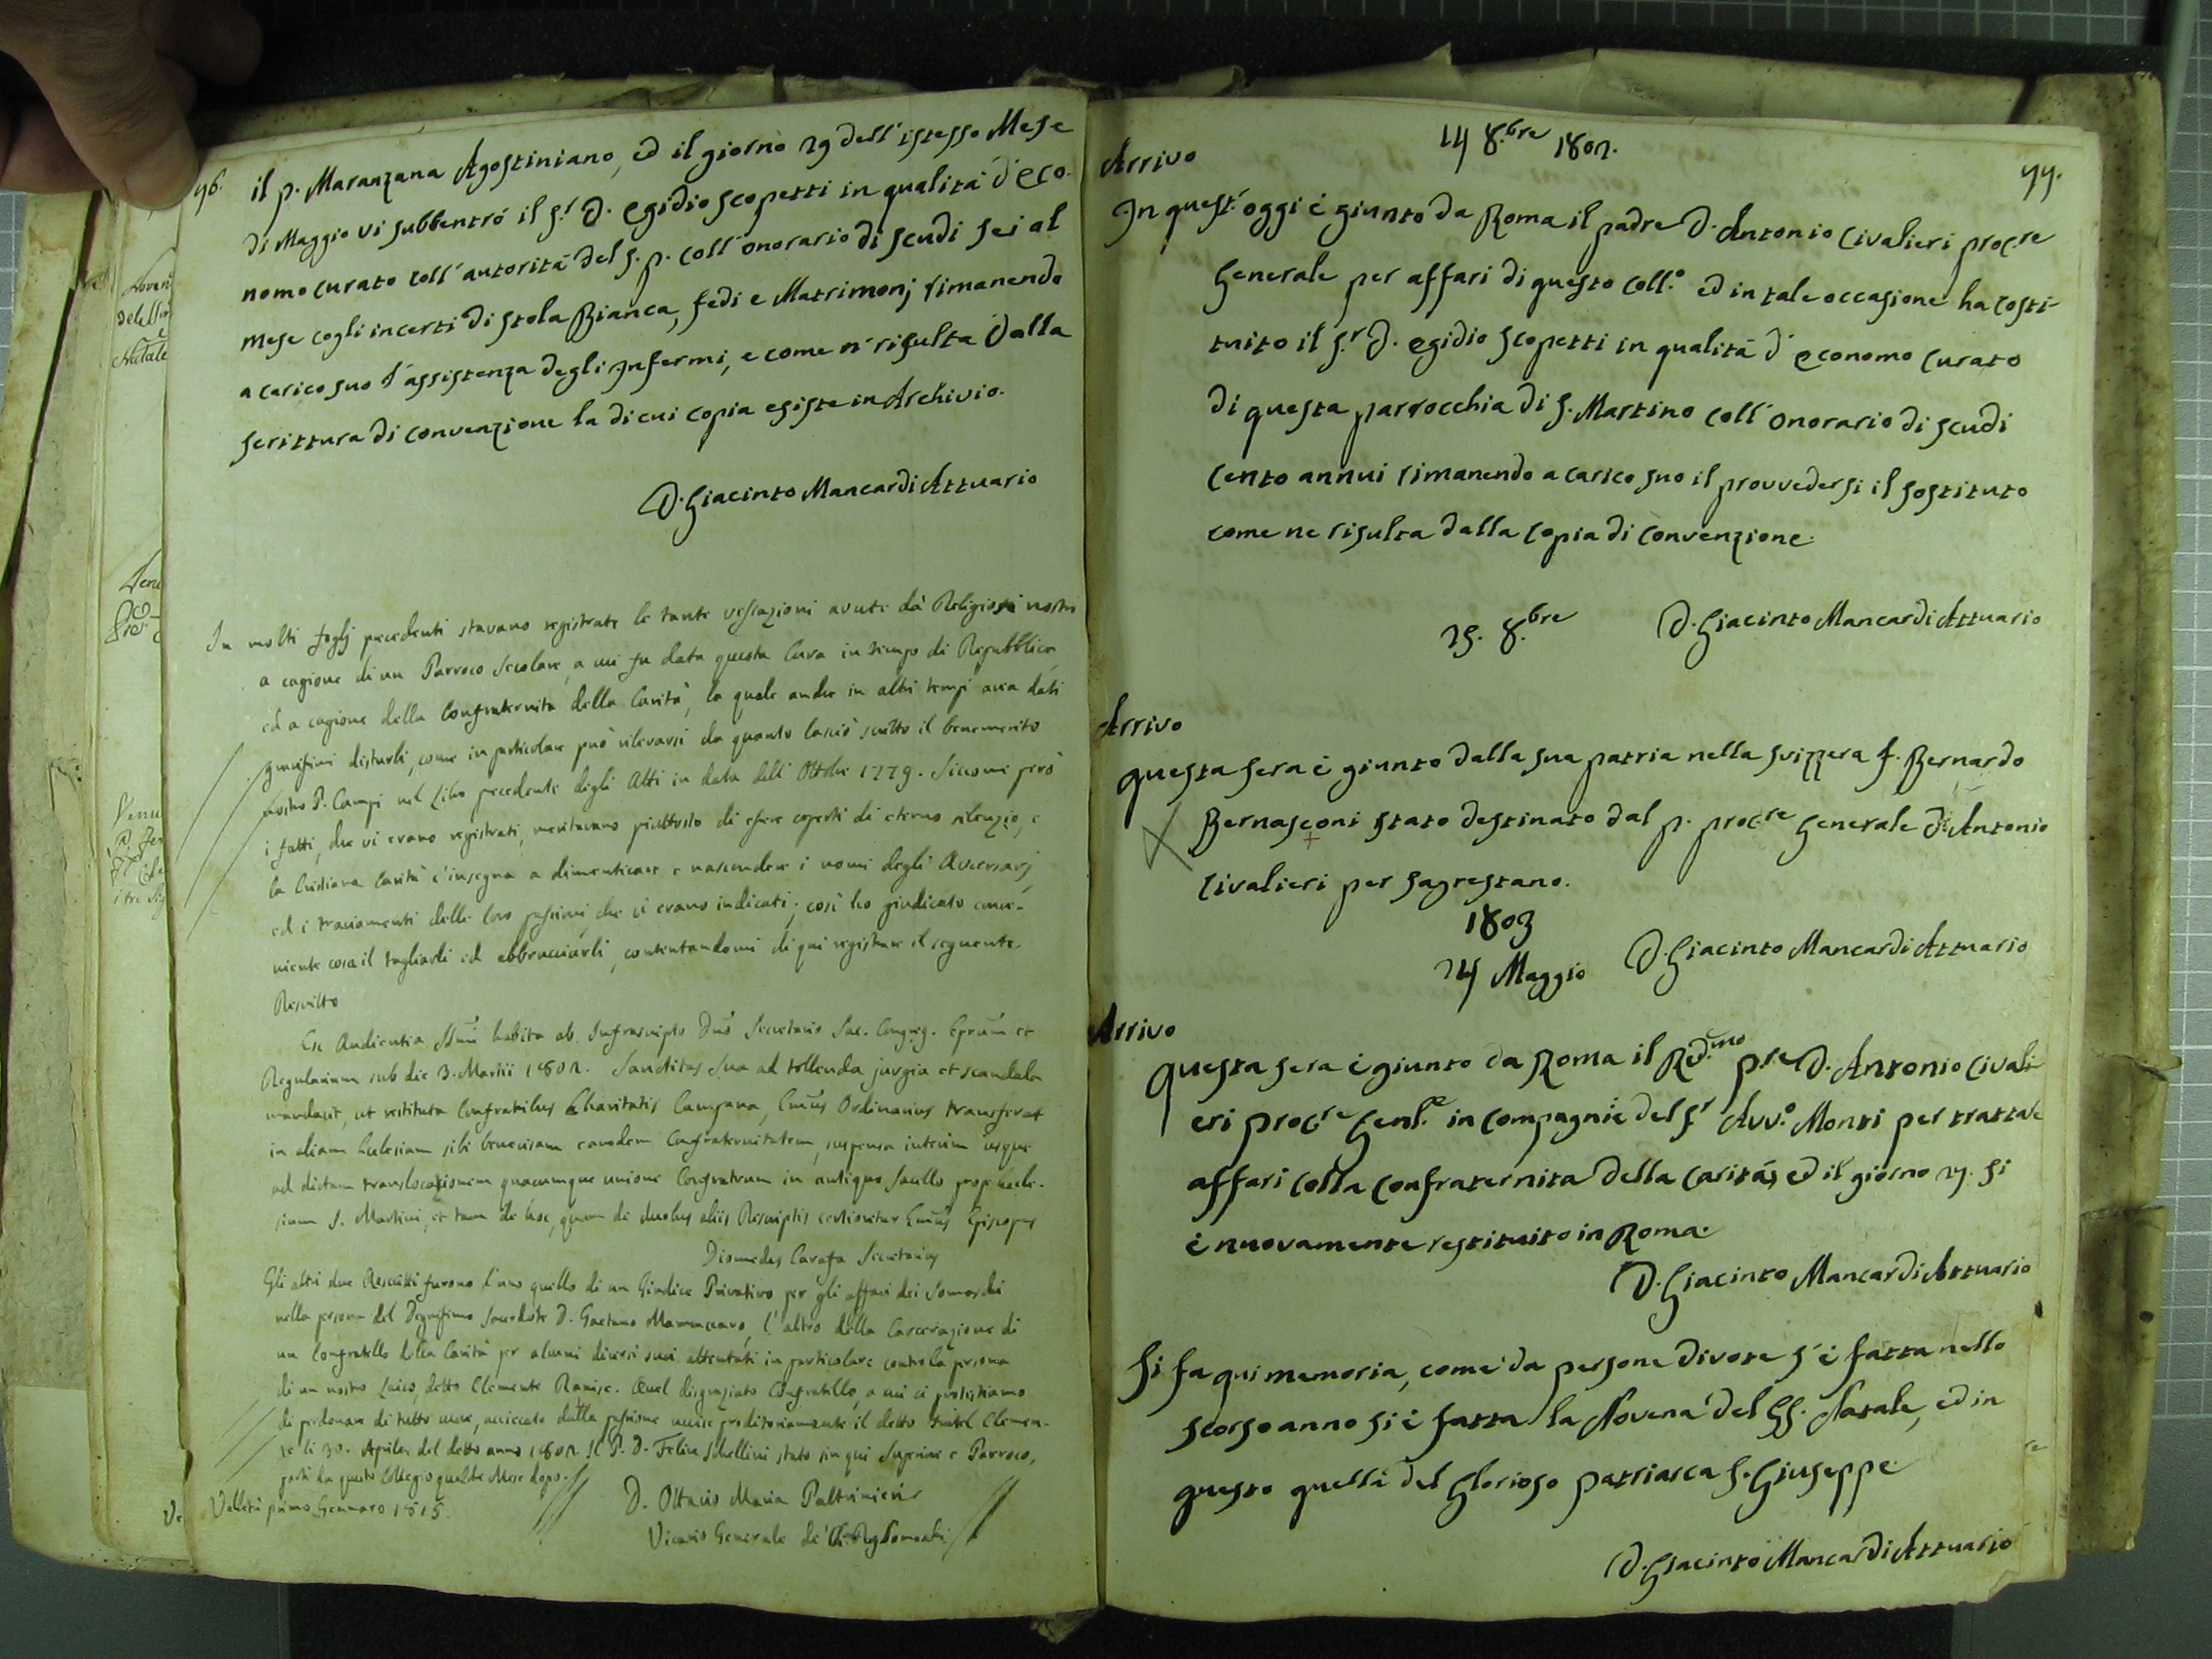 96.
il p. Maranzana Agostiniano, ed il giorno 29 dell'istesso Mese
di Maggio vi subbentrò il S.r D. Egidio Scopetti in qualità d'Eco-
nomo Curato coll'autorità del S. P. coll'onorario di scudi sei al
Mese cogli incerti di stola Bianca, fedi e Matrimonj rimanendo
a carico suo l'assistenza degli Infermi, e come n'risulta dalla
scrittura di convenzione la di cui copia esiste in Archivio.
D. Giacinto Mancardi Attuario
In molti foglj precedenti stavano registrate le tante vessazioni avute da' Religiosi nostri
a cagione di un Parroco Secolare, a cui fu data questa Cura in tempo di Repubblica,
ed a cagione della Confraternita della Carità, la quale anche in altri tempi avea dati
gravissimi disturbi, come in particolare può rilevarsi da quanto lasciò scritto il benemerito
nostro P. Campi nel Libro precedente degli Atti in data dell' Ottobre 1779. Siccome però
i fatti, che vi erano registrati, meritavano piuttosto di essere coperti di eterno silenzio, e
la Cristiana Carità c'insegna a dimenticare e nascondere i nomi degli Avversarj
ed i traviamenti delle loro passioni, che vi erano indicati; così ho giudicato conve-
niente cosa il tagliarli ed abbruciarli, contentandomi di qui registrare il seguente
Rescritto
Ex Audientia SSmi habita ab Infrascripto Dno Secretario Sac. Congreg. Eprum et
Regularium sub die 3. Martii 1802. Sanctitas Sua ad tollenda jurgia et scandala
mandavit, ut restituta Confratribus Charitatis Campana, Emus Ordinarius transferat
in aliam Ecclesiam sibi benevisam eamdem Confraternitatem, suspensa interim usque
ad dictam translocationem quacumque unione Confratrum in antiquo Sacello prope Eccle-
siam S. Martini, et tam de hoc, quam de duobus aliis Rescriptis certioretur Emus Episcopus
Diomedes Carafa Secretarius
Gli altri due Rescritti furono l'uno quello di un Giudice Privativo per gli affari dei Somaschi
nella persona del Degnissimo Sacerdote D. Gaetano Mammucari, l'altro della Carcerazione di
un Confratello della Carità per alcuni diversi suoi attentati in particolare contro la persona
di un nostro Laico, detto Clemente Ranise. Quel disgraziato Confratello, a cui ci protestiamo
di perdonare di tutto cuore, acciecato dalla passione uccise proditoriamente il detto Fratel Clemen-
te li 30. Aprile del detto anno 1802. Il P. D. Felice Schellini stato sin qui Superiore e Parroco,
partì da questo Collegio qualche Mese dopo.
Velletri primo Gennaro 1815.
D. Ottavio Maria Paltrinieri
Vicario Generale de' Somaschi
97.
14 8.bre 1802.
Arrivo
In quest'oggi è giunto da Roma il padre D. Antonio Civalieri proc.re
Generale per affari di questo Coll.o ed in tale occasione ha costi-
tuito il S.r D. Egidio Scopetti in qualità d'Economo Curato
di questa parrocchia di S. Martino coll'onorario di scudi
Cento annui rimanendo a carico suo il provvedersi il sostituto
come ne risulta dalla Copia di Convenzione.
D. Giacinto Mancardi Attuario
25. 8.bre
Arrivo
Questa sera è giunto dalla sua patria nella Svizzera f. Bernardo
Bernasconi stato destinato dal p. proc.re Generale D. Antonio
Civalieri per sagrestano.
D. Giacinto Mancardi Attuario
1803
24 Maggio
Arrivo
Questa sera è giunto da Roma il Rd.mo p.re D. Antonio Civali-
eri proc.re Genl.e in compagnie del S.r Avv.o Monti per trattare
affari colla Confraternita della Carità, ed il giorno 27. si
è nuovamente restituito in Roma.
D. Giacinto Mancardi Attuario
Si fa qui memoria, come da persone divote s'è fatta nello
scorso anno si è fatta la Novena del SS. Natale, ed in
questo quella del Glorioso Patriarca S. Giuseppe
D. Giacinto Mancardi Attuario